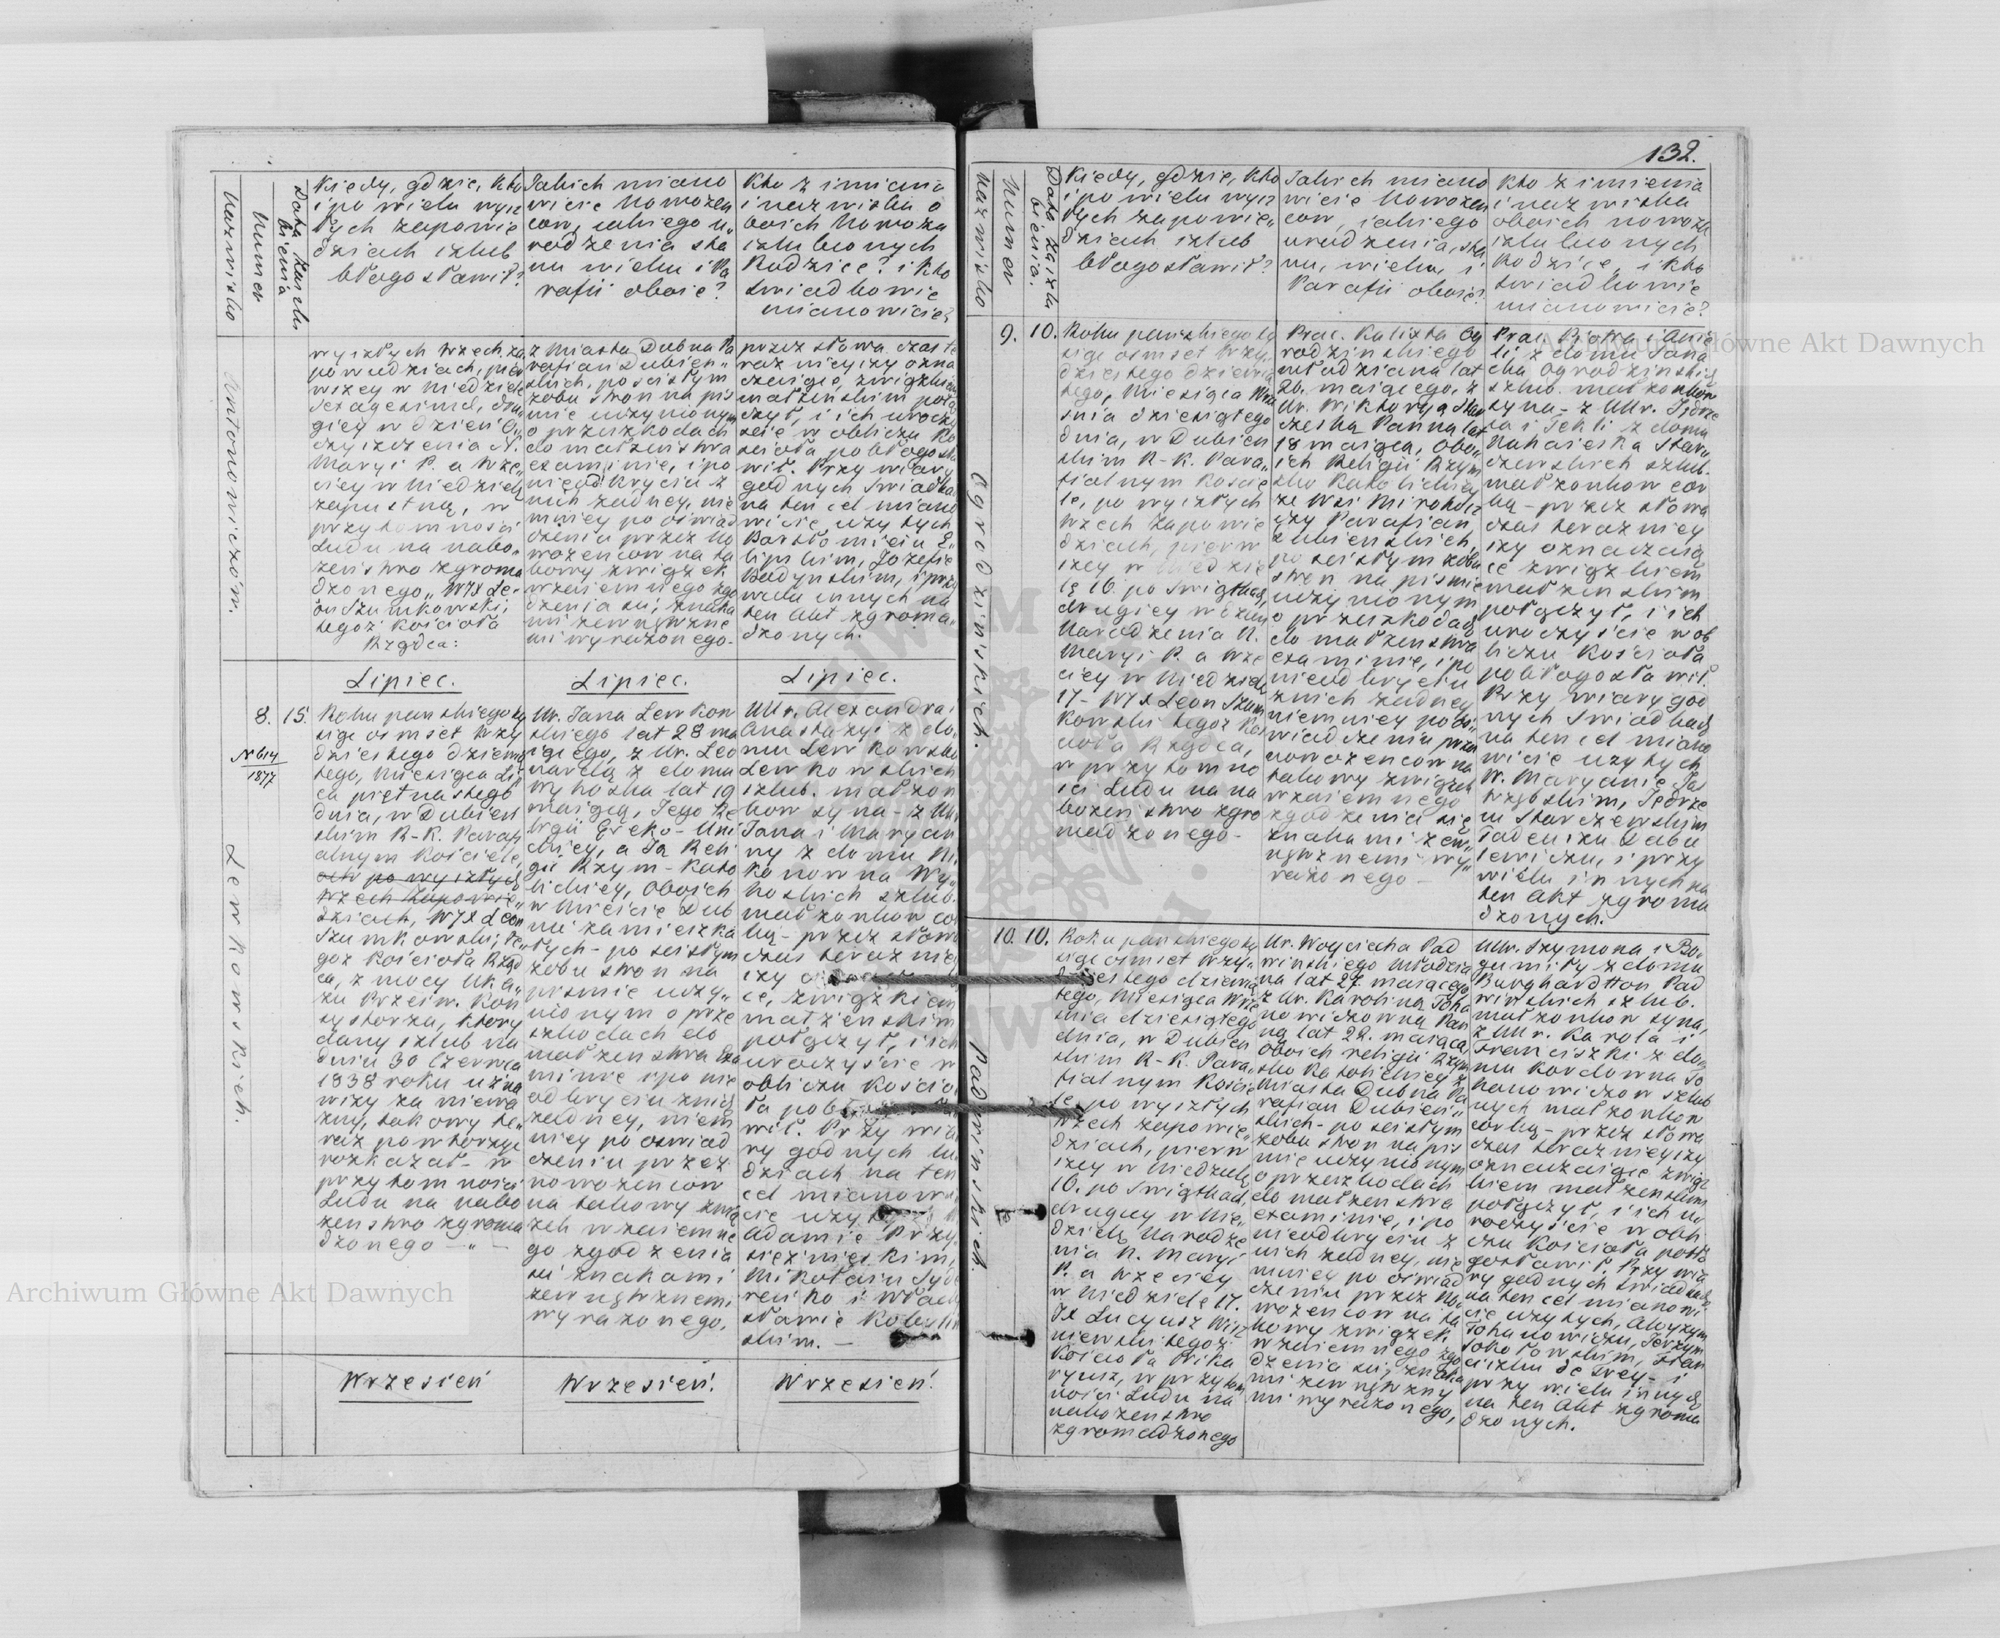 132.
Nazwisko
Numer
Data zaszlu
bienia
Kiedy, gdzie, Kto
i po wielu wysz
łych zapowie
dziach szlub
błogosławił?
Jakich miano
wicie Nowożeń
cow, jakiego u„
rodzenia sta
nu wieku i Pa
rafii oboie?
Kto z imienia
i nazwiska o
boich Nowoża
szlubionych
Rodzice? i kto
swiadkowie
mianowicie?
Antonowiczów.
wyszłych trzech za
powiedziach, pier
wszey w Niedziele
Sexagesima, dru
giey w dzien O
czyszczenia N.
Maryi P. a trze
ciey w Niedziele
zapustną, w
przytomności
Ludu na nabo„
żeństwo zgroma
dzonego„ WJX Le„
on Szumkowski,
tegoż Kościoła
Rządca:
z Miasta Dubna Pa
rafian Dubien„
skich, po scisłym
z obu stron na piś
mie uczynionym
o przeszkodach
do małżenstwa
examinie, i po
nieodkryciu z
nich żadney, nie
mniey po oświad
czeniu przez No
wożencow na ta
kowy związek
wzaiemnego zgo
dzenia się, znaka
mi zewnętrzne
mi wyrażonego.
przez słowa czas te
raznieyszy ozna
czaiące, związkiem
małżenskim połą
czył, i ich uroczy
scie w obliczu Ko
scioła pobłogosła
wił. Przy wiary
godnych Swiadkach
na ten cel miano
wicie użytych
Bartłomieiu
lipskim, Jozefie
Badynskim, i przy
wielu innych na
ten Akt zgroma„
dzonych.
Lipiec.
Lipiec.
Lipiec.
8.
15.
N 614
1877
Lewkowskich.
Roku panskiego ty
siąc osmset trzy
dziestego dziewią
tego, Miesiąca Lip
ca piętnastego
dnia, w Dubien
skim R-K. Parafi
alnym Kosciele,
po wyszłych
trzech zapowie„
dziach, WJX Leon
Szumkowski, te„
goż Kościoła Rząd
ca, z mocy Uka„
zu Przesw. Kon
systorza, ktory
dany szlub na
dniu 30 Czerwca
1838 roku uzna
wszy za niewa
żny, takowy te„
raz powtorzyc
rozkazał - w
przytomności
Ludu na nabo
żenstwo zgroma
dzonego — „ —
Ur. Jana Lewkow
skiego lat 28 ma
iącego, z Ur. Leo
nardą z domu
Wyhoska lat 19
maiącą, Jego Re
ligii Greko-Uni
ckiey, a Ją Reli
gii Rzym-Kato
lickiey, Oboich
w Miescie Dub
nie zamieszka
łych - po scisłym
z obu stron na
pismie uczy„
nionym o prze
szkodach do
małżenstwa exa
minie i po nie
odkryciu z nich
żadney, niem
niey po oswiad
czeniu przez
nowożencow
na takowy zwią
zek wzaiemne
go zgodzenia
się znakami
zewnętrznemi
wyrażonego.
UUr. Alexandra i
Anastazyi z do„
mu Lewkowska
Lewkowskich
szlub. małżon
kow syna - z UUr
Jana i Maryan
ny z domu Mi
konowna Wy„
hoskich szlub.
małżonkow cor
ką - przez słowa
czas teraznie
szy
ce, związkiem
małżenskim
połączył, i ich
uroczyscie w
obliczu Koscio
ła pobłogosła
wił. Przy wia
ry godnych lu
dziach na ten
cel mianowi
cie użytych
Adamie Przy
siężnieckim,
Mikołaiu Syde
renko i Włady
sławie Kobylin
skim. —
Wrzesień
Wrzesień.
Wrzesień.
Nazwisko
Numer
Data zaszlu
bienia.
Kiedy, gdzie, Kto
i po wielu wysz
łych zapowie„
dziach szlub
błogosławił?
Jakich miano
wicie Nowożen
cow, jakiego
urodzenia, sta
nu, wieku, i
Parafii oboie?
Kto z imienia
i nazwiska
oboich nowoza
szlubionych
Rodzice, i kto
swiadkowie
mianowicie?
9.
10.
Ogrodzinskich.
Roku panskiego ty
siąc osmset trzy„
dziestego dziewią
tego, Miesiąca Wrze
snia dziesiątego
dnia, w Dubien
skim R-K. Para„
fialnym Koscie
le, po wyszłych
trzech zapowie
dziach, pierw
szey w Niedzie
lę 16. po Swiątkach,
drugiey w dzien
Narodzenia N.
Maryi P. a trze
ciey w Niedzielę
17 - WJX Leon Szum
kowski tegoż Kos
cioła Rządca,
w przytomno
ści Ludu na na
bożeństwo zgro
madzonego -
Prac. Kalixta Og
rodzinskiego
młodziana lat
26. maiącego, z
Ur. Wiktoryą Star
czeską Panną lat
18 maiącą, Obo„
ich Religii Rzym
sko Katolickiey
ze Wsi Mirohosz
czy Parafian
Dubienskich,
po scisłym z obu
stron na pismie
uczynionym
o przeszkodach
do małżenstwa
examinie, i po
nieodkryciu
z nich żadney
niemniey po os
wiadczeniu przez
nowożencow na
takowy związek
wzaiemnego
zgodzenia się
znakami zew„
nętrznemi wy„
rażonego —
Prac. Piotra i Anie
li z domu Jana
cka Ogrodzinskich
szlub. małżonkow
syna - z UUr. Jędrze
ja i Tekli z domu
Nahasieska Star„
czewskich szlub.
małżonkow cor
ką - przez słowa
czas teraznicy
szy oznaczaią
ce związkiem
małżenskim
połączył, i ich
uroczyscie w ob
liczu Kościoła
pobłogosławił.
Przy wiary god
nych swiadkach
na ten cel miano
wicie użytych
W. Maryanie Jas
trzębskim, Jędrze
iu Starczewskim
Tadeuszu Dubu
lewiczu, i przy
wielu innych na
ten Akt zgroma
dzonych.
10.
10.
Padwinskich.
Roku panskiego ty
siąc osmset trzy„
dziestego dziewią
tego, Miesiąca Wrze
snia dziesiątego
dnia, w Dubien
skim R-K. Para„
fialnym Koscie
le, po wyszłych
trzech zapowie„
dziach, pierw
szey w Niedzielę
16. po Swiątkach,
drugiey w Nie„
dzielę Narodze
nia N. Maryi
P. a trzeciey
w Niedzielę 17.
JX Lucyusz Wisz
niewski tegoż
Kościoła Wika
ryusz, w przytom
ności Ludu na
nabożenstwo
zgromadzonego
Ur. Woyciecha Pad
winskiego Młodzia
na lat 27. maiącego
z Ur. Karoliną Toha
nowiczowną Pan
ną lat 22. maiącą,
Oboich religii Rzym
sko Katolickiey z
Miasta Dubna Pa
rafian Dubien„
skich - po scisłym
z obu stron na piś
mie uczynionym
o przeszkodach
do małżenstwa
examinie, i po
nieodkryciu z
nich żadney, nie
mniey po oświad
czeniu przez No„
wożencow na ta
kowy związek
wzaiemnego zgo
dzenia się, znaka
mi zewnętrzny
mi wyrażonego,
UUr. Szymona i Bo„
gumiły z domu
Burghardtton Pad
winskich szlub.
małżonkow syna,
z UUr. Karola i
Franciszki z do„
mu Kordowna To
hanowiczow szlub
nych małżonkow
corką - przez słowa
czas teraznieyszy
oznaczaiące związ
kiem małżenskim
połączył, i ich u„
roczyscie w obli
czu Kościoła pobło
gosławił. Przy wia
ry godnych swiadkach
na ten cel mianowi
cie użytych, Aloyzym
Tohanowiczu, Jerzym
Sokołowskim, Fran
ciszku de Frey - i
przy wielu innych
na ten Akt zgroma
dzonych.
Archiwum Główne Akt Dawnych
Archiwum Główne Akt Dawnych